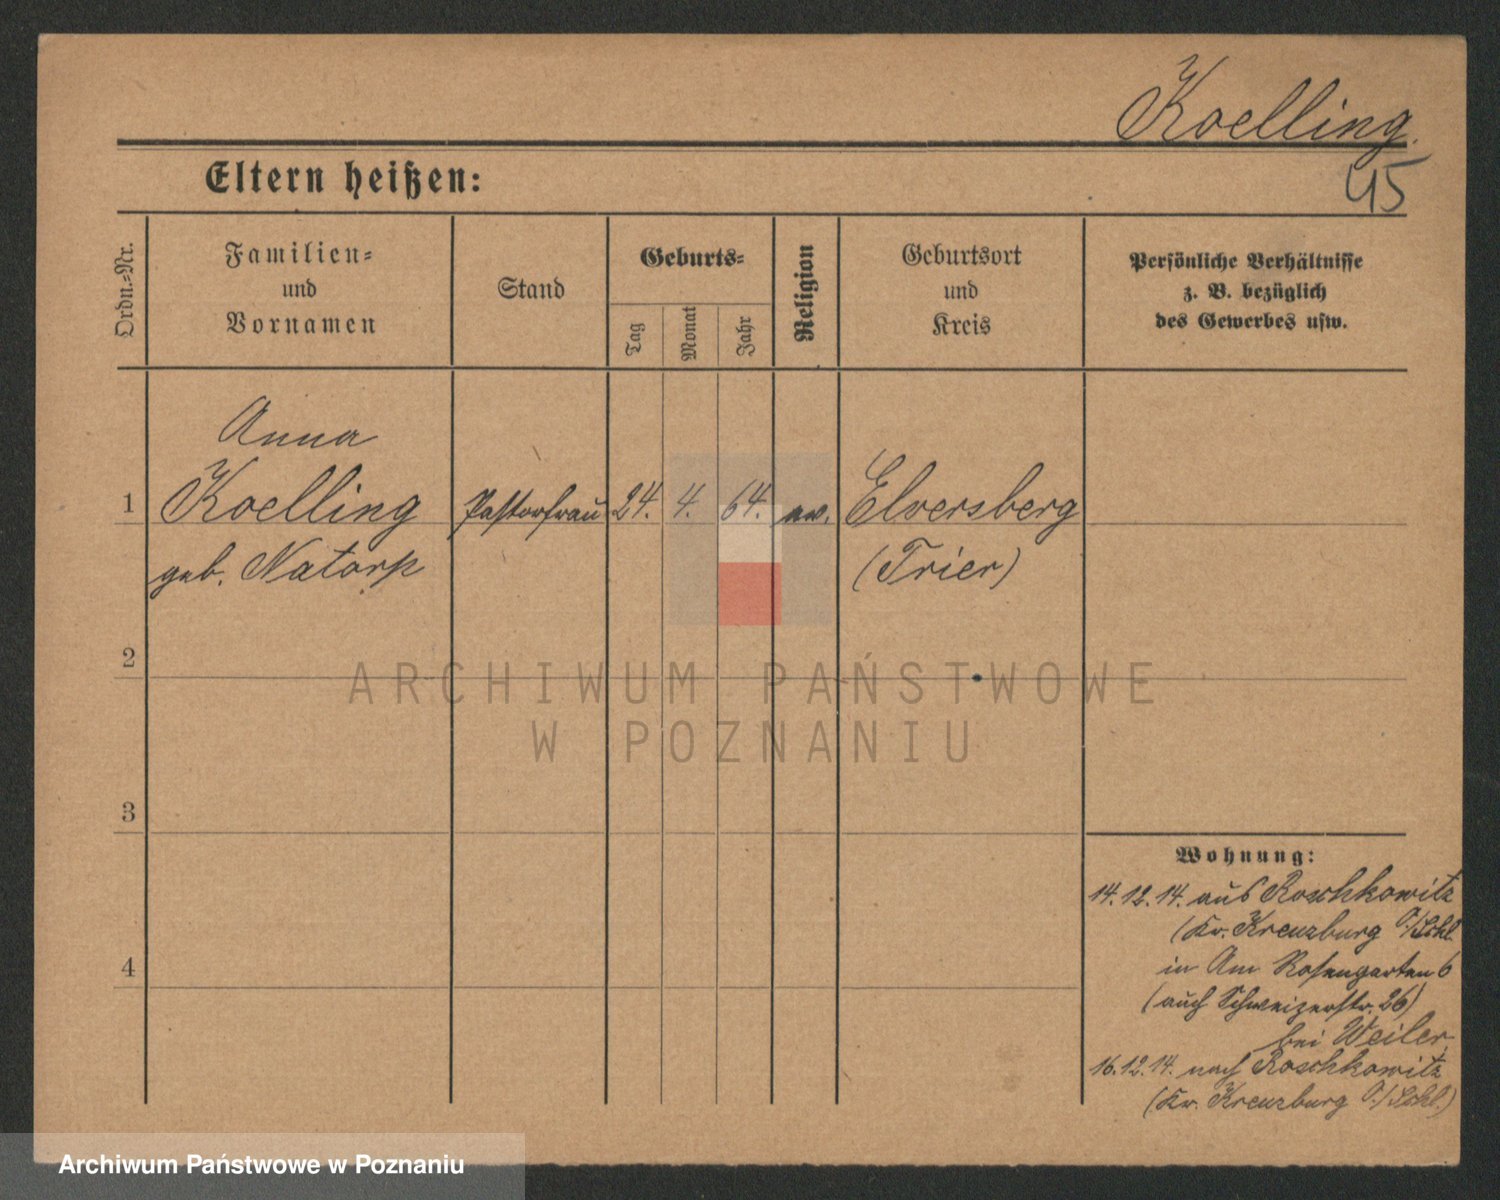 Koelling.
45
Eltern heißen:
Ordn.=Nr.
Familien=
und
Vornamen
Stand
Geburts=
Tag
Monat
Jahr
Religion
Geburtsort
und
Kreis
Persönliche Verhältnisse
z. B. bezüglich
des Gewerbes usw.
Anna
1 Koelling Pastorfrau 24. 4. 64. ev. Elversberg
geb. Natorp (Trier)
2
ARCHIWUM PAŃSTWOWE
W POZNANIU
3
Wohnung:
14.12.14. aus Roschkowitz
(Kr. Kreuzburg O/Schl.
in Am Rosengarten 6
4
(auch Schweizerstr. 26)
bei Weiler.
16.12.14. nach Roschkowitz
(Kr. Kreuzburg O/Schl.)
Archiwum Państwowe w Poznaniu